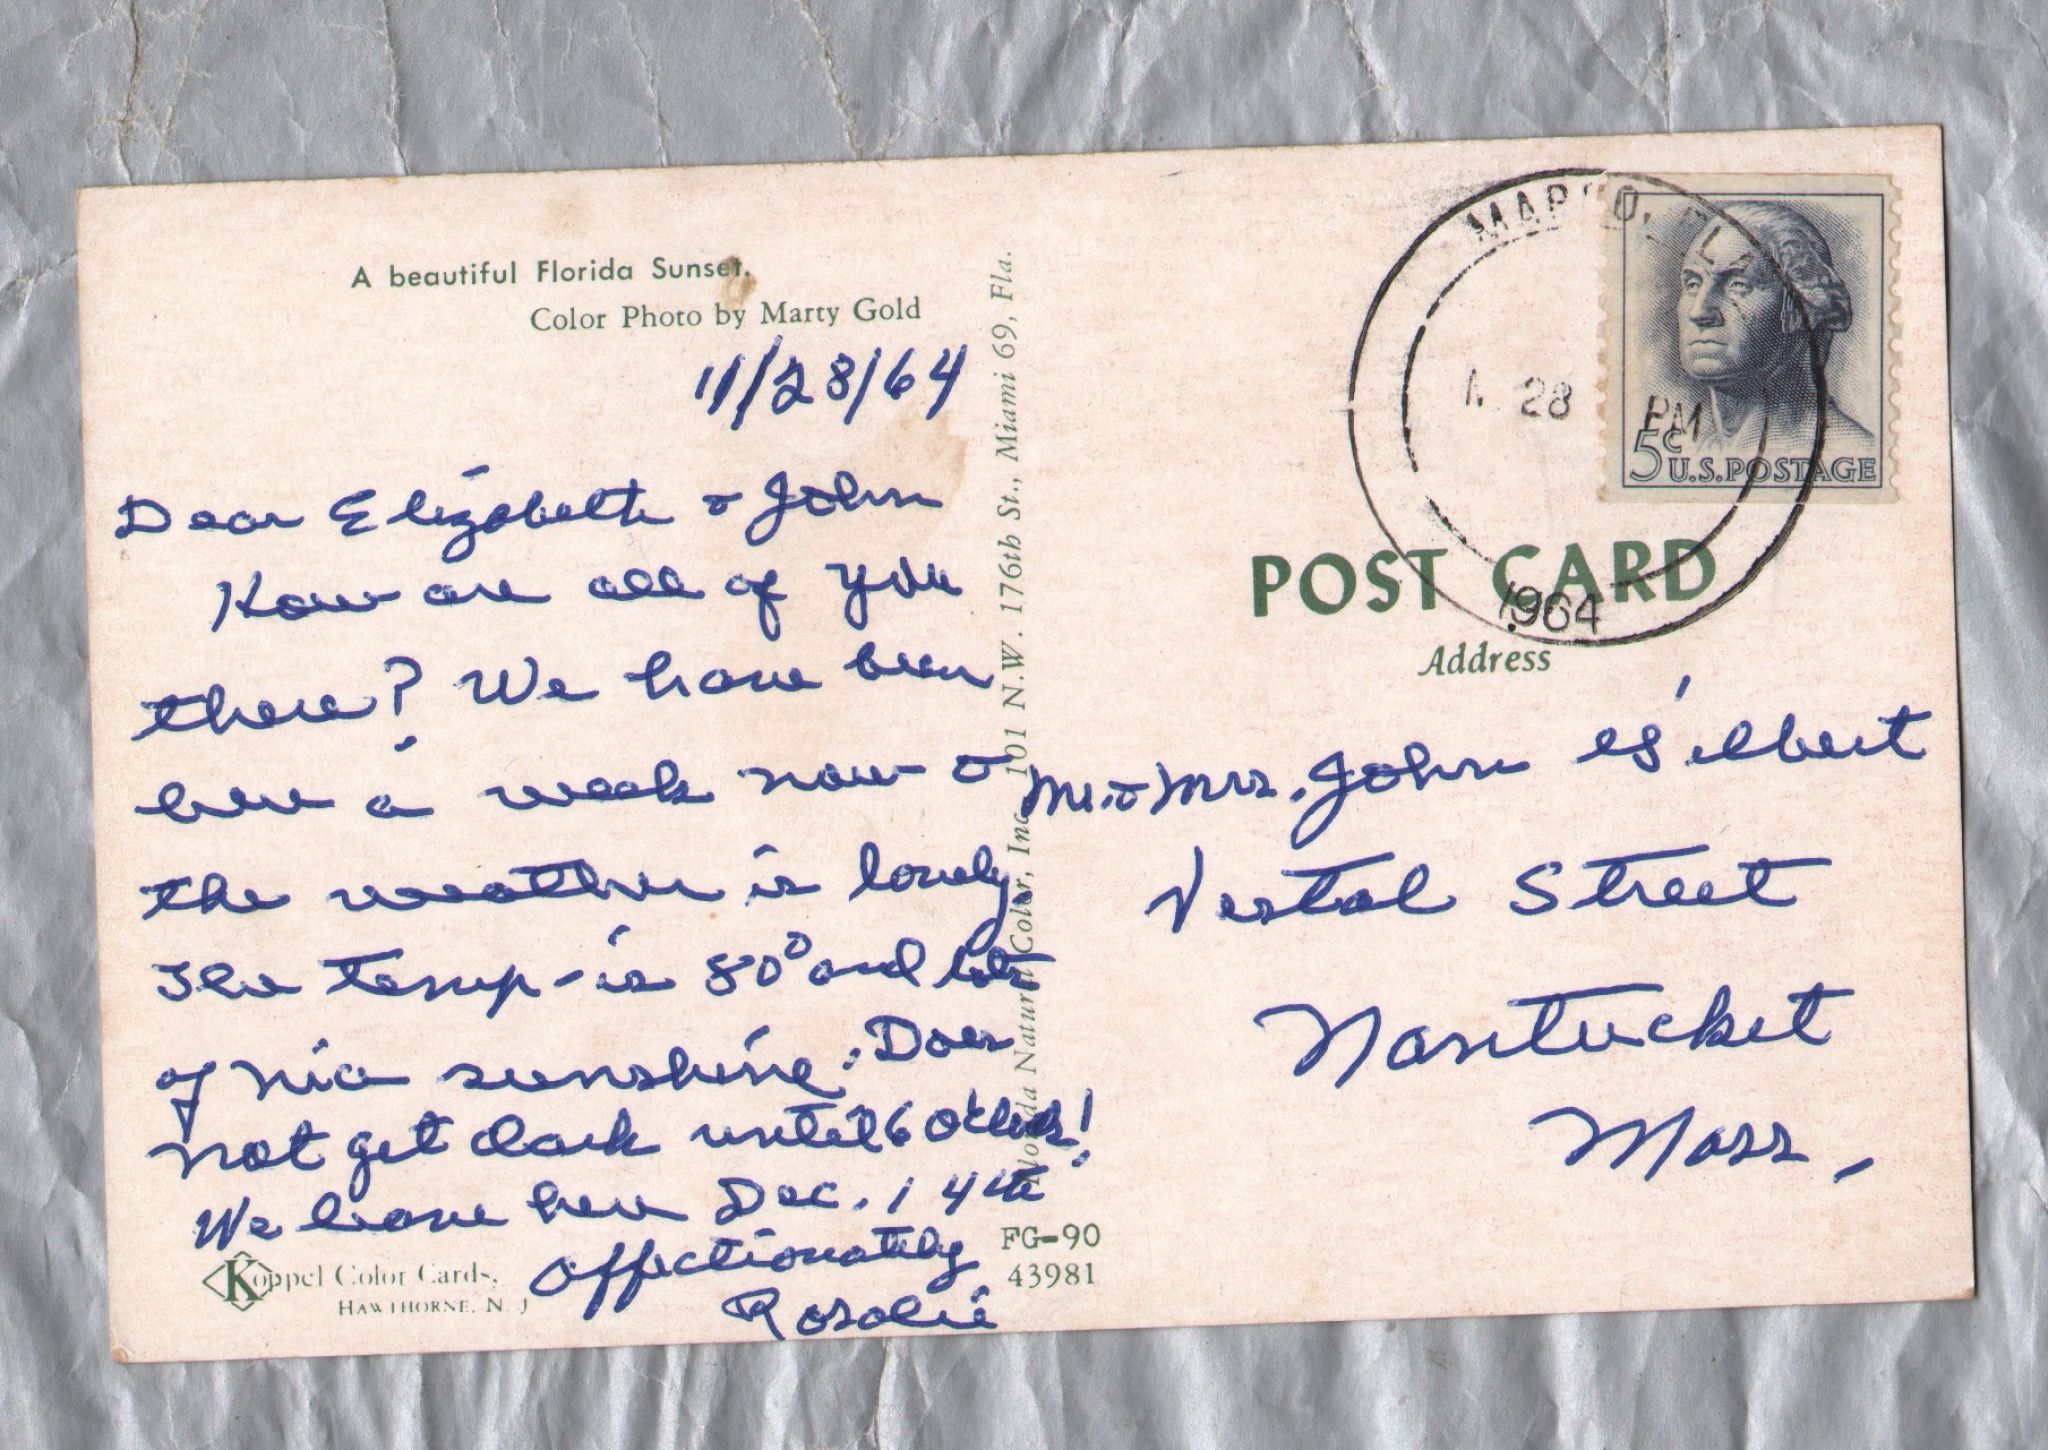 A beautiful Florida Sunset.
Color Photo by Marty Gold
11/28/64
Dear Elizabeth & John
How are all of you
there? We have been
here a week now &
the weather is lovely.
The temp - is 80° and lots
of nice sunshine. Does
not get dark until 6 o'clock!
We leave here Dec. 14th
Affectionately
Rosalie
Koppel Color Cards,
HAWTHORNE, N. J.
Florida Natural Color, Inc. 101 N.W. 176th St., Miami 69, Fla.
FG-90
43981
MARCO, FLA
28
PM
1964
5¢ U.S.POSTAGE
POST CARD
Address
Mr. & Mrs. John Gilbert
Vestal Street
Nantucket
Mass,